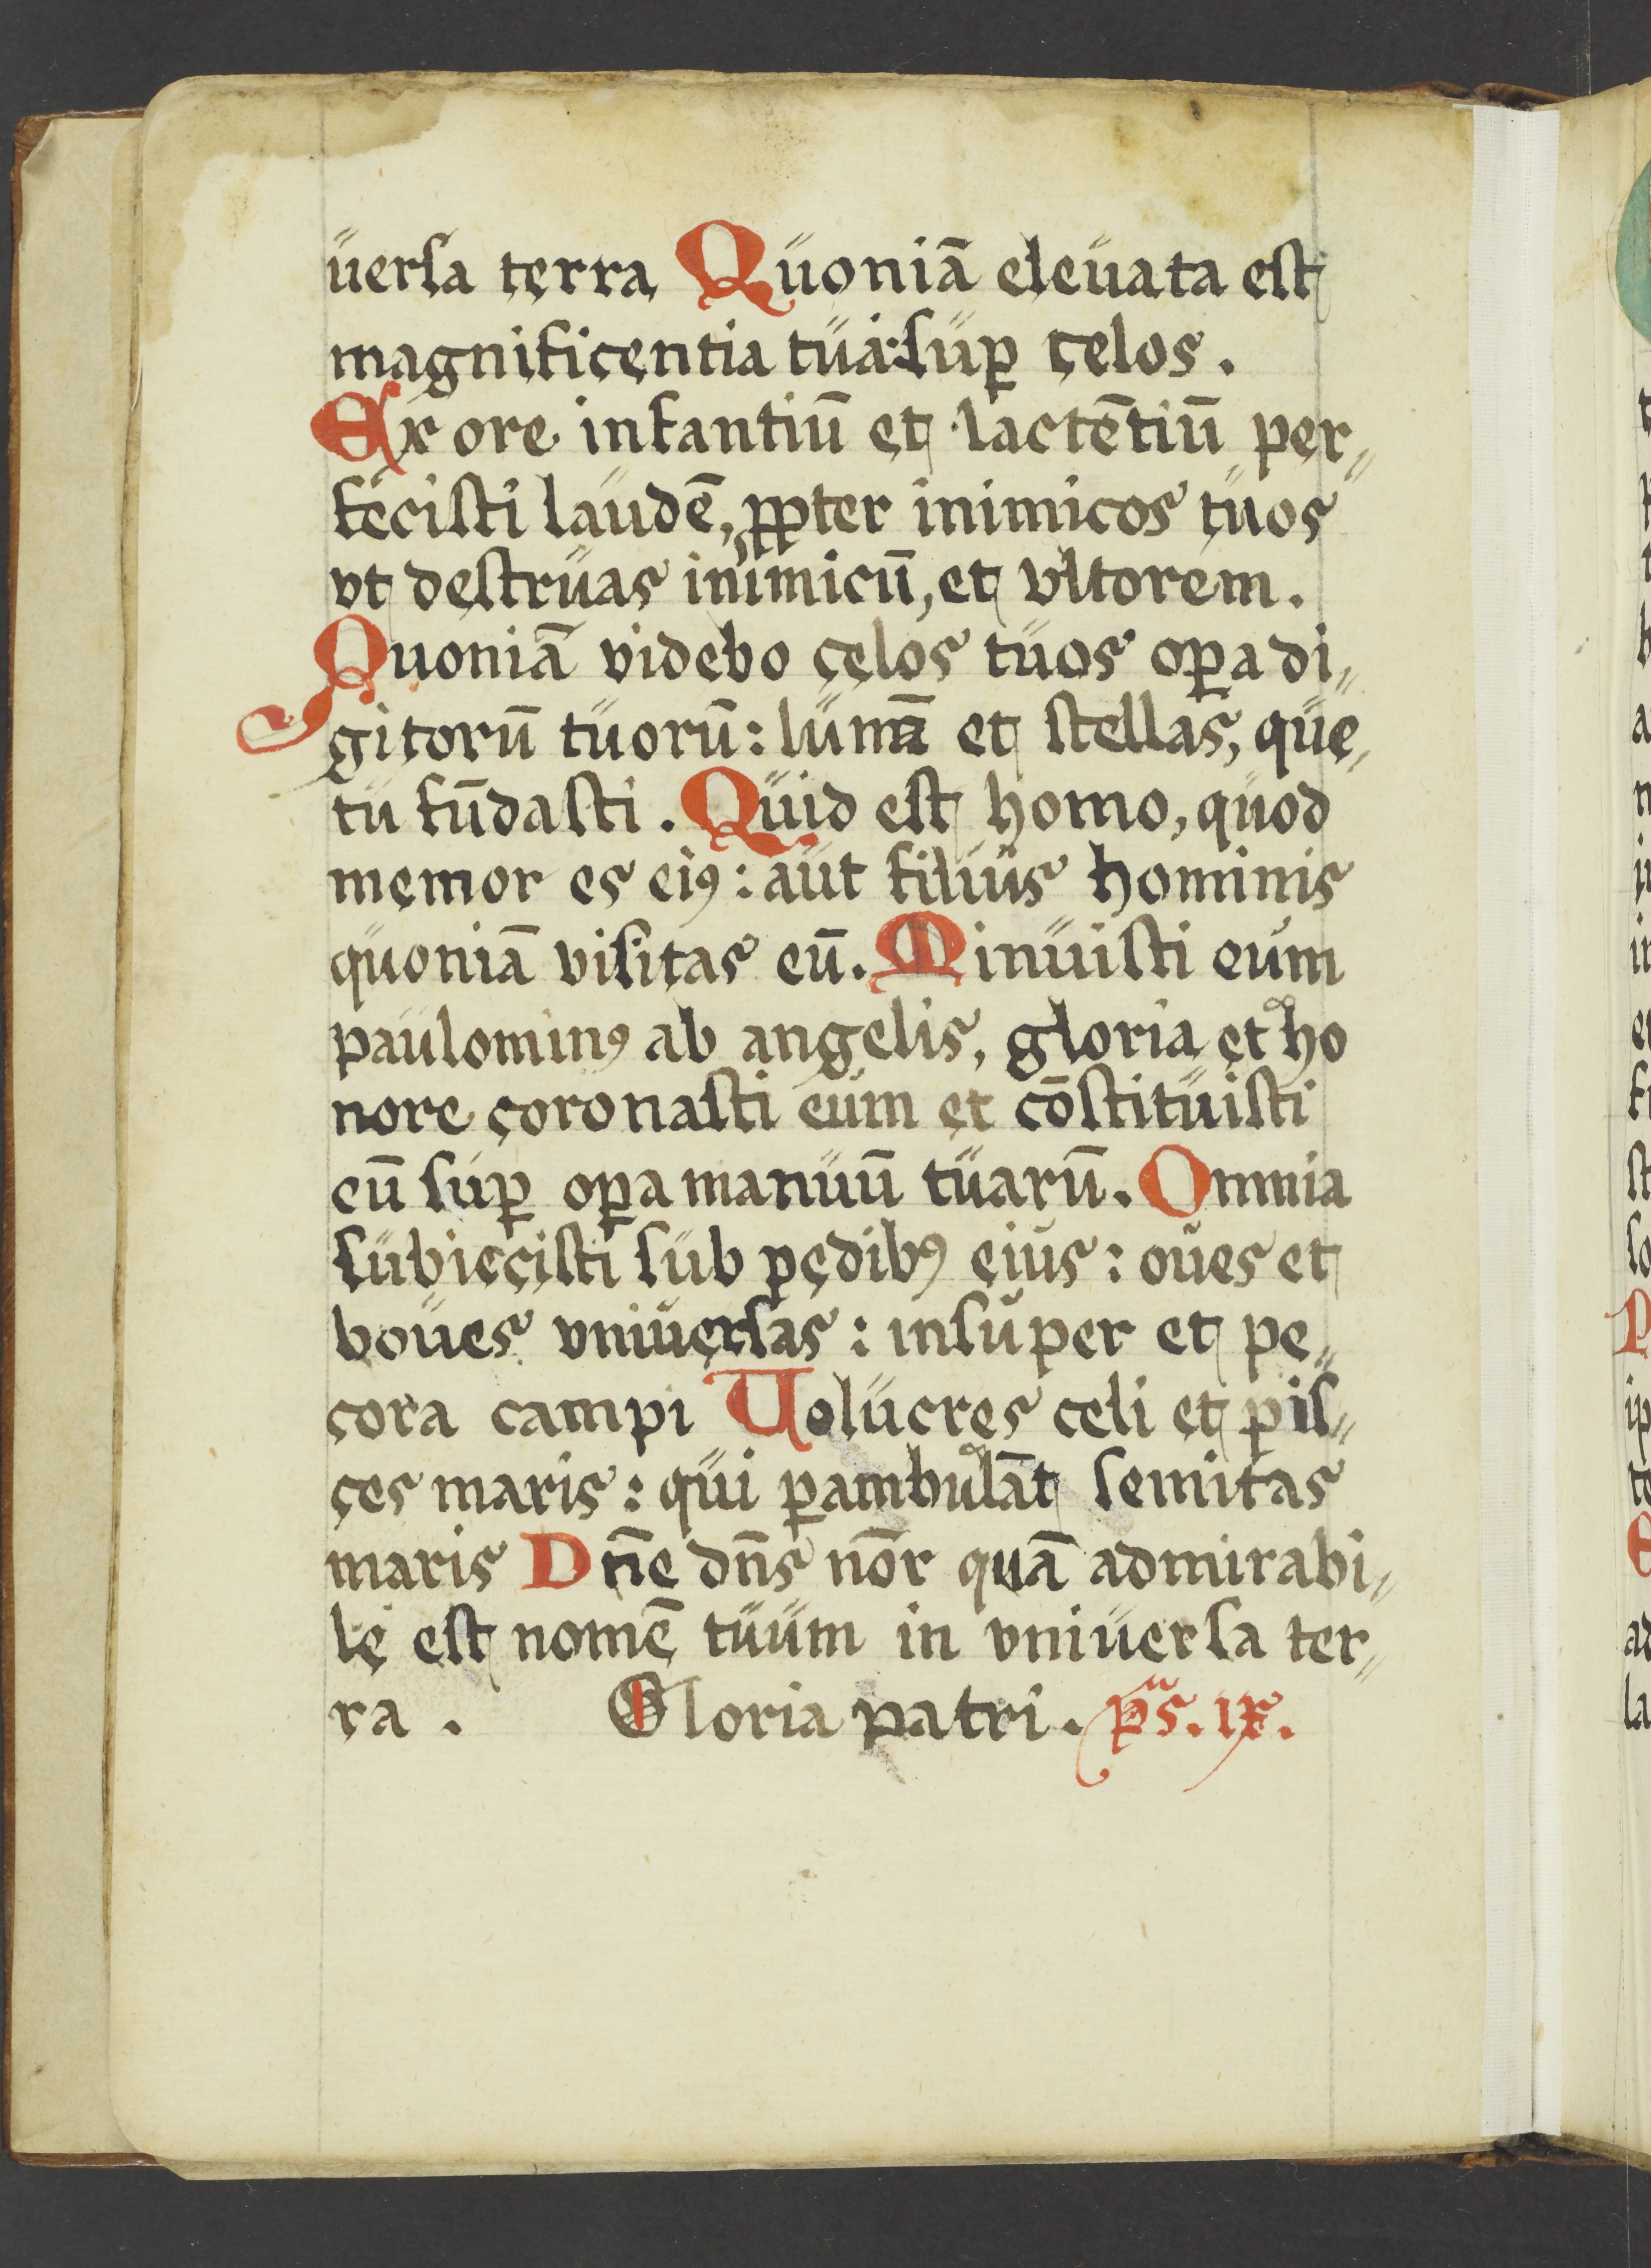 üerſa terra Qüoniā eleüata eſt
magnificentia tüa:ſüꝑ celos.
Ex ore infantiū et lactētiū per⸗
feciſti laüdē, ꝓpter inimicos tüos
vt deſtrüas inimicū, et vltorem.
Quoniā videbo celos tüos oꝑa di⸗
gitorū tüorū: lünā et ſtellas, qüe
tü fūdaſti. Qüid eſt homo, qüod
memor es eiꝰ: aüt filiüs hominis
qüoniā viſitas eū. Minüiſti eüm
paülominꝰ ab angelis, gloria et ho
nore coronaſti eüm et cōſtitüiſti
eū ſüꝑ oꝑa manüū tüarū. Omnia
ſübieciſti ſüb pedibꝰ eiüs: oües et
boües vniüerſas: inſüper et pe⸗
cora campi Uolücres celi et piſ⸗
ces maris: qüi ꝑambülāt ſemitas
maris Dn̄e dn̄s nōr quā admirabi⸗
le eſt nomē tüüm in vniüerſa ter⸗
ra. Gloria patri. ps. ix.